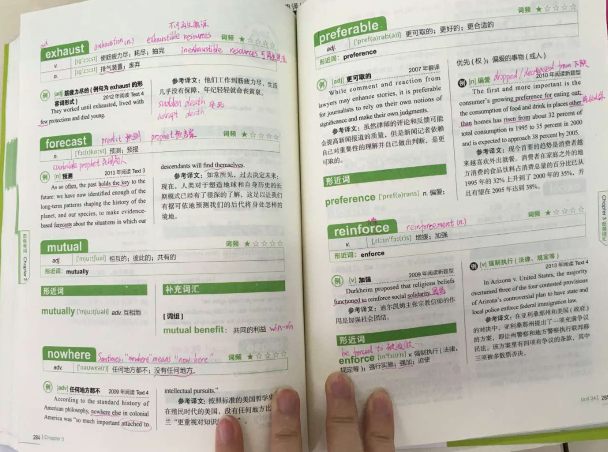 exhaust
exhaustion (n.) exhaustible resources
词频 ★☆☆☆☆
v. 使筋疲力尽；耗尽；抽完
n. 排气装置；废弃
inexhaustible resources
例 [adj] 筋疲力尽的（例句为 exhaust 的形容词形式）
2012 年阅读 Text 4
They worked until exhausted, lived with
few protections and died young.
参考译文：他们工作到筋疲力尽，生活
几乎没有保障，年纪轻轻就会丧命。
sudden death
abrupt death
forecast
predict
prophet
词频 ★☆☆☆☆
预测；预报
例 [n] 预测
2013 年阅读 Text 3
As so often, the past holds the key to the
future: we have now identified enough of the
long-term patterns shaping the history of the
planet, and our species, to make evidence-
based forecasts about the situations in which our
descendants will find themselves.
参考译文：如常所见，过去决定未来：
现在，人类对于塑造地球和自身历史的长
期模式已经有了很深的了解，这足以让我们
有据可依地预测我们的后代将身处怎样的
境地。
mutual
词频 ★☆☆☆☆
adj. 相互的；彼此的；共有的
形近词：mutually
形近词
mutually ['mjuːtʃuəli] adv. 互相地
补充词汇
[词组]
mutual benefit: 共同的利益 win-win
nowhere
"nowhere" means "now here"
词频 ★☆☆☆☆
adv. 任何地方都不；没有任何地方
例 [adv] 任何地方都不
2009 年阅读 Text 4
According to the standard history of
American philosophy, nowhere else in colonial
America was "so much important attached to
intellectual pursuits."
参考译文：按照标准的美国哲学史
在殖民时代的美国，没有任何地方比
284 Chapter 3
preferable
词频 ★☆☆☆☆
adj. 更可取的；更好的；更合适的
形近词：preference
例 [adj] 更可取的
2007 年翻译
While comment and reaction from
lawyers may enhance stories, it is preferable
for journalists to rely on their own notions of
significance and make their own judgments.
参考译文：虽然律师的评论和反馈可能
会提高新闻报道的质量，但是新闻记者依赖
自己对重要性的理解并自己做出判断，是更
可取的。
形近词
preference ['prefrəns] n. 偏爱；
优先（权）；偏爱的事物（或人）
例 [n] 偏爱
2010 年阅读新题型
The first and more important is the
consumer's growing preference for eating out;
the consumption of food and drink in places other
than homes has risen from about 32 percent of
total consumption in 1995 to 35 percent in 2000
and is expected to approach 38 percent by 2005.
参考译文：现今首要的趋势是消费者越
来越喜欢外出就餐，消费者在家庭之外的地
方消费的食品饮料占消费总量的百分比已从
1995 年的 32% 上升到了 2000 年的 35%，并
且有望在 2005 年达到 38%。
reinforce
reinforcement (n.)
词频 ★☆☆☆☆
v. 增援；加强
形近词：enforce
例 [v] 加强
2009 年阅读新题型
Durkheim proposed that religious beliefs
functioned to reinforce social solidarity.
参考译文：迪尔凯姆主张宗教信仰的作
用是加强社会团结。
形近词
be forced to
enforce v. 强制执行（法律、
规定等）；强行实施；强加；迫使
例 [v] 强制执行（法律、规定等）
2013 年阅读 Text 4
In Arizona v. United States, the majority
overturned three of the four contested provisions
of Arizona's controversial plan to have state and
local police enforce federal immigration law.
参考译文：在亚利桑那州和美国（政府）
的对决中，亚利桑那州提出了一项充满争议
的方案，即让州警察和地方警察执行联邦移
民法，该方案里有四项有争议的条款，其中
三项被多数票否决。